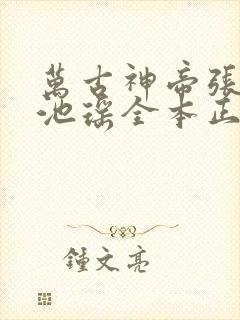 萬古神帝張
池瑤全本正
鍾文亮